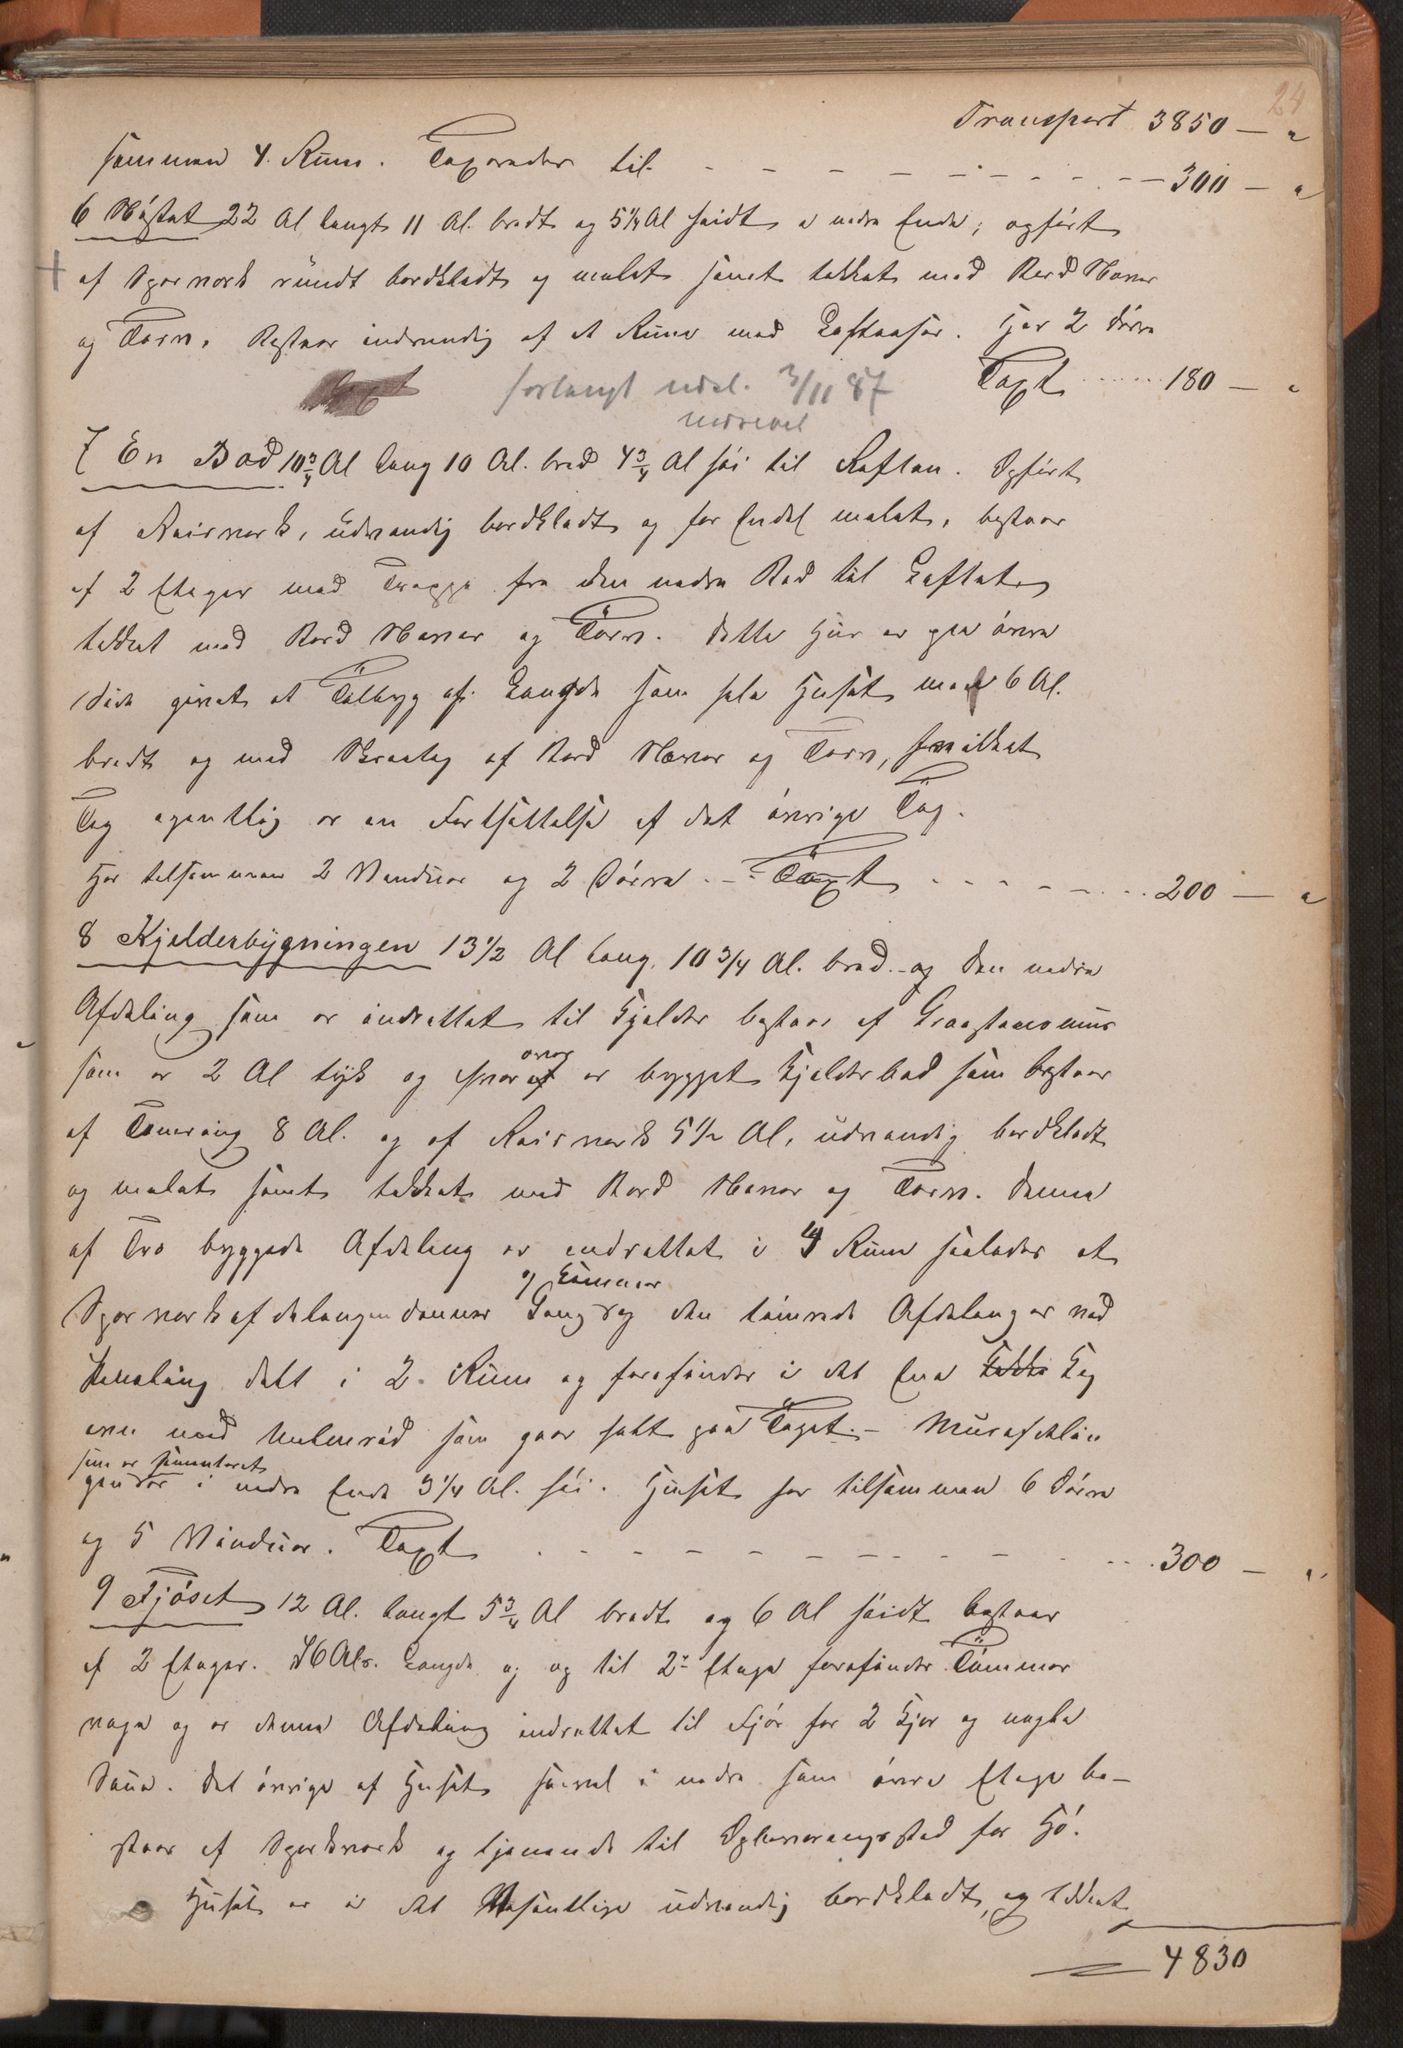 24
Transport 3850 — "
sammen 4. Rum. Taxerades til - - - - - - - - 300 — "
6 Nøstet 22 Al langt 11 Al. bredt og 5 1/4 Al høidt i nedre Ende; opført
af Sperverk rundt bordklædt og malet samt tekket med Bord Næver
og Torv. Bestaar indvendig af et Rum med Loftaaser. Har 2 Døre
forlangt udel. 3/11 87 Taxt ..... 180 — "
7 En Bod 10 3/4 Al lang 10 Al. bred 4 3/4 Al høi til Raften. Opført
af Reisverk, udvendig bordklædt og for Endel malet, bestaar
af 2 Etager med Trappe fra den nedre Bod til Loftet
tekket med Bord Næver og Torv. Dette Hus er paa øvre
Side givet et Tilbyg af Længde som hele Huset med 6 Al.
bredt og med Skraatag af Bord Næver og Torv, hvilket
Tag egentlig er en Fortsættelse af det øvrige Tag.
Har tilsammen 2 Vinduer og 2 Døre. - Taxt - - - - - - 200 — "
8 Kjelderbygningen 13 1/2 Al lang, 10 3/4 Al. bred - og den nedre
Afdeling som er indrettet til Kjelder bestaar af Graastensmur
som er 2 Al tyk og hver over er bygget Kjelderbod som bestaar
af Tømring 8 Al. og af Reisverk 5 1/2 Al, udvendig bordklædt
og malet samt tekket med Bord Næver og Torv. Denne
af Træ byggede Afdeling er indrettet i 4 Rum saaledes at
og Kammer
Sperverksafdelingen danner Gang og den tømrede Afdeling er ved
Paneling delt i 2 Rum og forefindes i det Ene
med som gaar høit paa Taget. - Murafdelin
som er sementeret
gen er i nedre Ende 3 1/4 Al. høi. Huset har tilsammen 6 Døre
og 5 Vinduer. Taxt - - - - - - - - - 300 — "
9 Fjøset 12 Al. langt 5 3/4 Al bredt og 6 Al høidt bestaar
af 2 Etager. I 6 Als. Længde og op til 2den Etage forefindes Tømmer
væge og er denne Afdeling indrettet til Fjøs for 2 Kjør og nogle
Sauer. Det øvrige af Huset saavel i nedre som øvre Etage be-
staar af Sperverk og tjenende til Opbevaringssted for Hø.
Huset er i det Væsentlige udvendig bordklædt, og tekket
4830